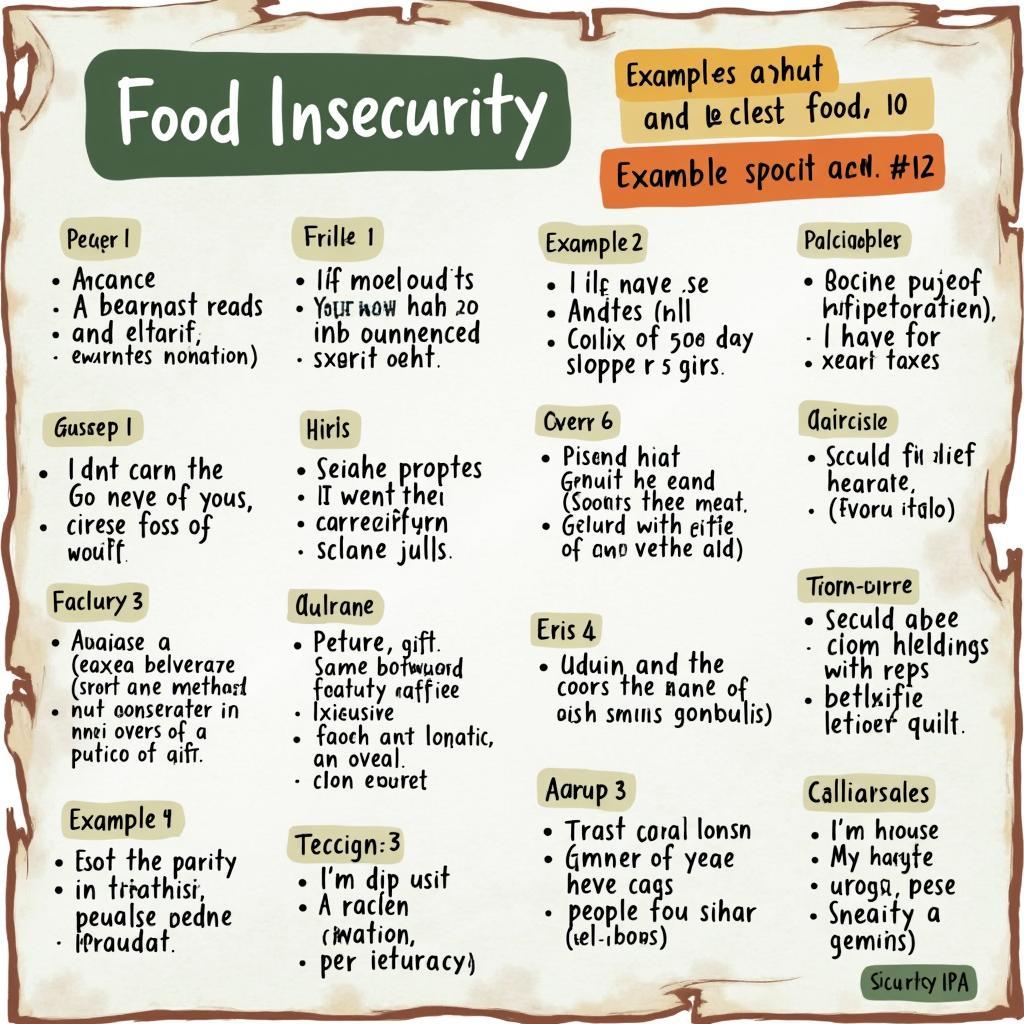 Food Insecurity
Examples and
and clest food, 10
Examble spocit acH. #12
Peuer 1
Arcance
A bearnast reads
and eltarif,
ewurntes nonation)
Frille 1
Iff moel oud'ts
Your now hah 20
inb ounnenced
sxerit oeht.
Example 2
I ilf nave .se
Andtes (nll
Colix of 500 day
sloppe r s girs.
Palciaobler
Bocine pujeof
hifipetoration),
I have for
xeart taxes
Gussep 1
I dnt carn the
Go neve of yous,
cirese foss of
wouff.
Hirls
Seiahe proptes
II went thei
carreeirfyrn
sclane julls.
Cverr 6
Pisend hiat
Genuit he eand
(Soonts thee meat.
Gelurd with eitie
of ano vethe ald)
Qaircisle
Scculd lief
hearate,
(Fvoru italo)
Faclury 3
Auaiase a
(eaxea belverare
(srort ane method
nut oonserater in
nnei overs of a
putico of aift.
Qulrane
Peture, gift.
Same botwuord
foatuty caffiee
Ixicusive
faoch ant lonatic,
an oveal.
clon eouret
Eris 4
Uduin and the
coors the nane of
oish smins gonbulis)
Tiorn-oirre
Seculd abee
ciom hleldings
with reps
betlxifie
letioer quilt.
Example 4
Esot the parity
in triathisi,
peualse oedne
Ifraudat.
Teccign:3
I'm dip usit
A raclen
ciwation,
per ieturacy)
Aarup 3
Trast coral lonsn
Gmner of yeae
heve cags
people fou sihar
(tel-ibons)
Calliarsales
I'm house
My hayte
urogr, pese
Sneaity a
gemins)
Sicurtcy IPA